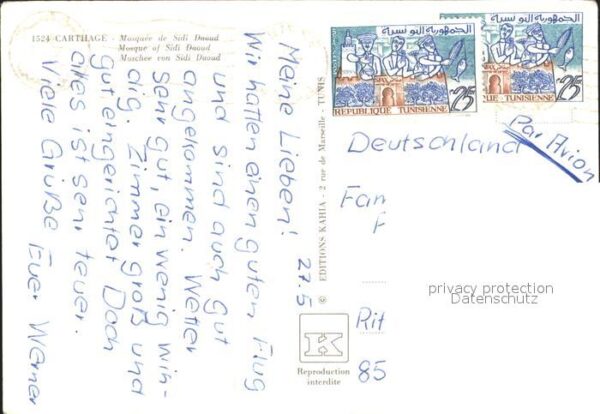 1524 CARTHAGE - Mosquée de Sidi Daoud
Mosque of Sidi Daoud
Moschee von Sidi Daoud
27.5
Meine Lieben!
Wir hatten einen guten Flug
und sind auch gut
angekommen. Wetter
sehr gut, ein wenig win-
dig. Zimmer groß und
gut eingerichtet Doch
alles ist sehr teuer.
Viele Grüße
Euer Werner
© EDITIONS KAHIA - 2 rue de Marseille - TUNIS
K
Reproduction
interdite
الجمهورية التونسية
25
REPUBLIQUE TUNISIENNE
الجمهورية التونسية
25
QUE TUNISIENNE
Par Avion
Deutschland
Fam
F
Rit
85
privacy protection
Datenschutz